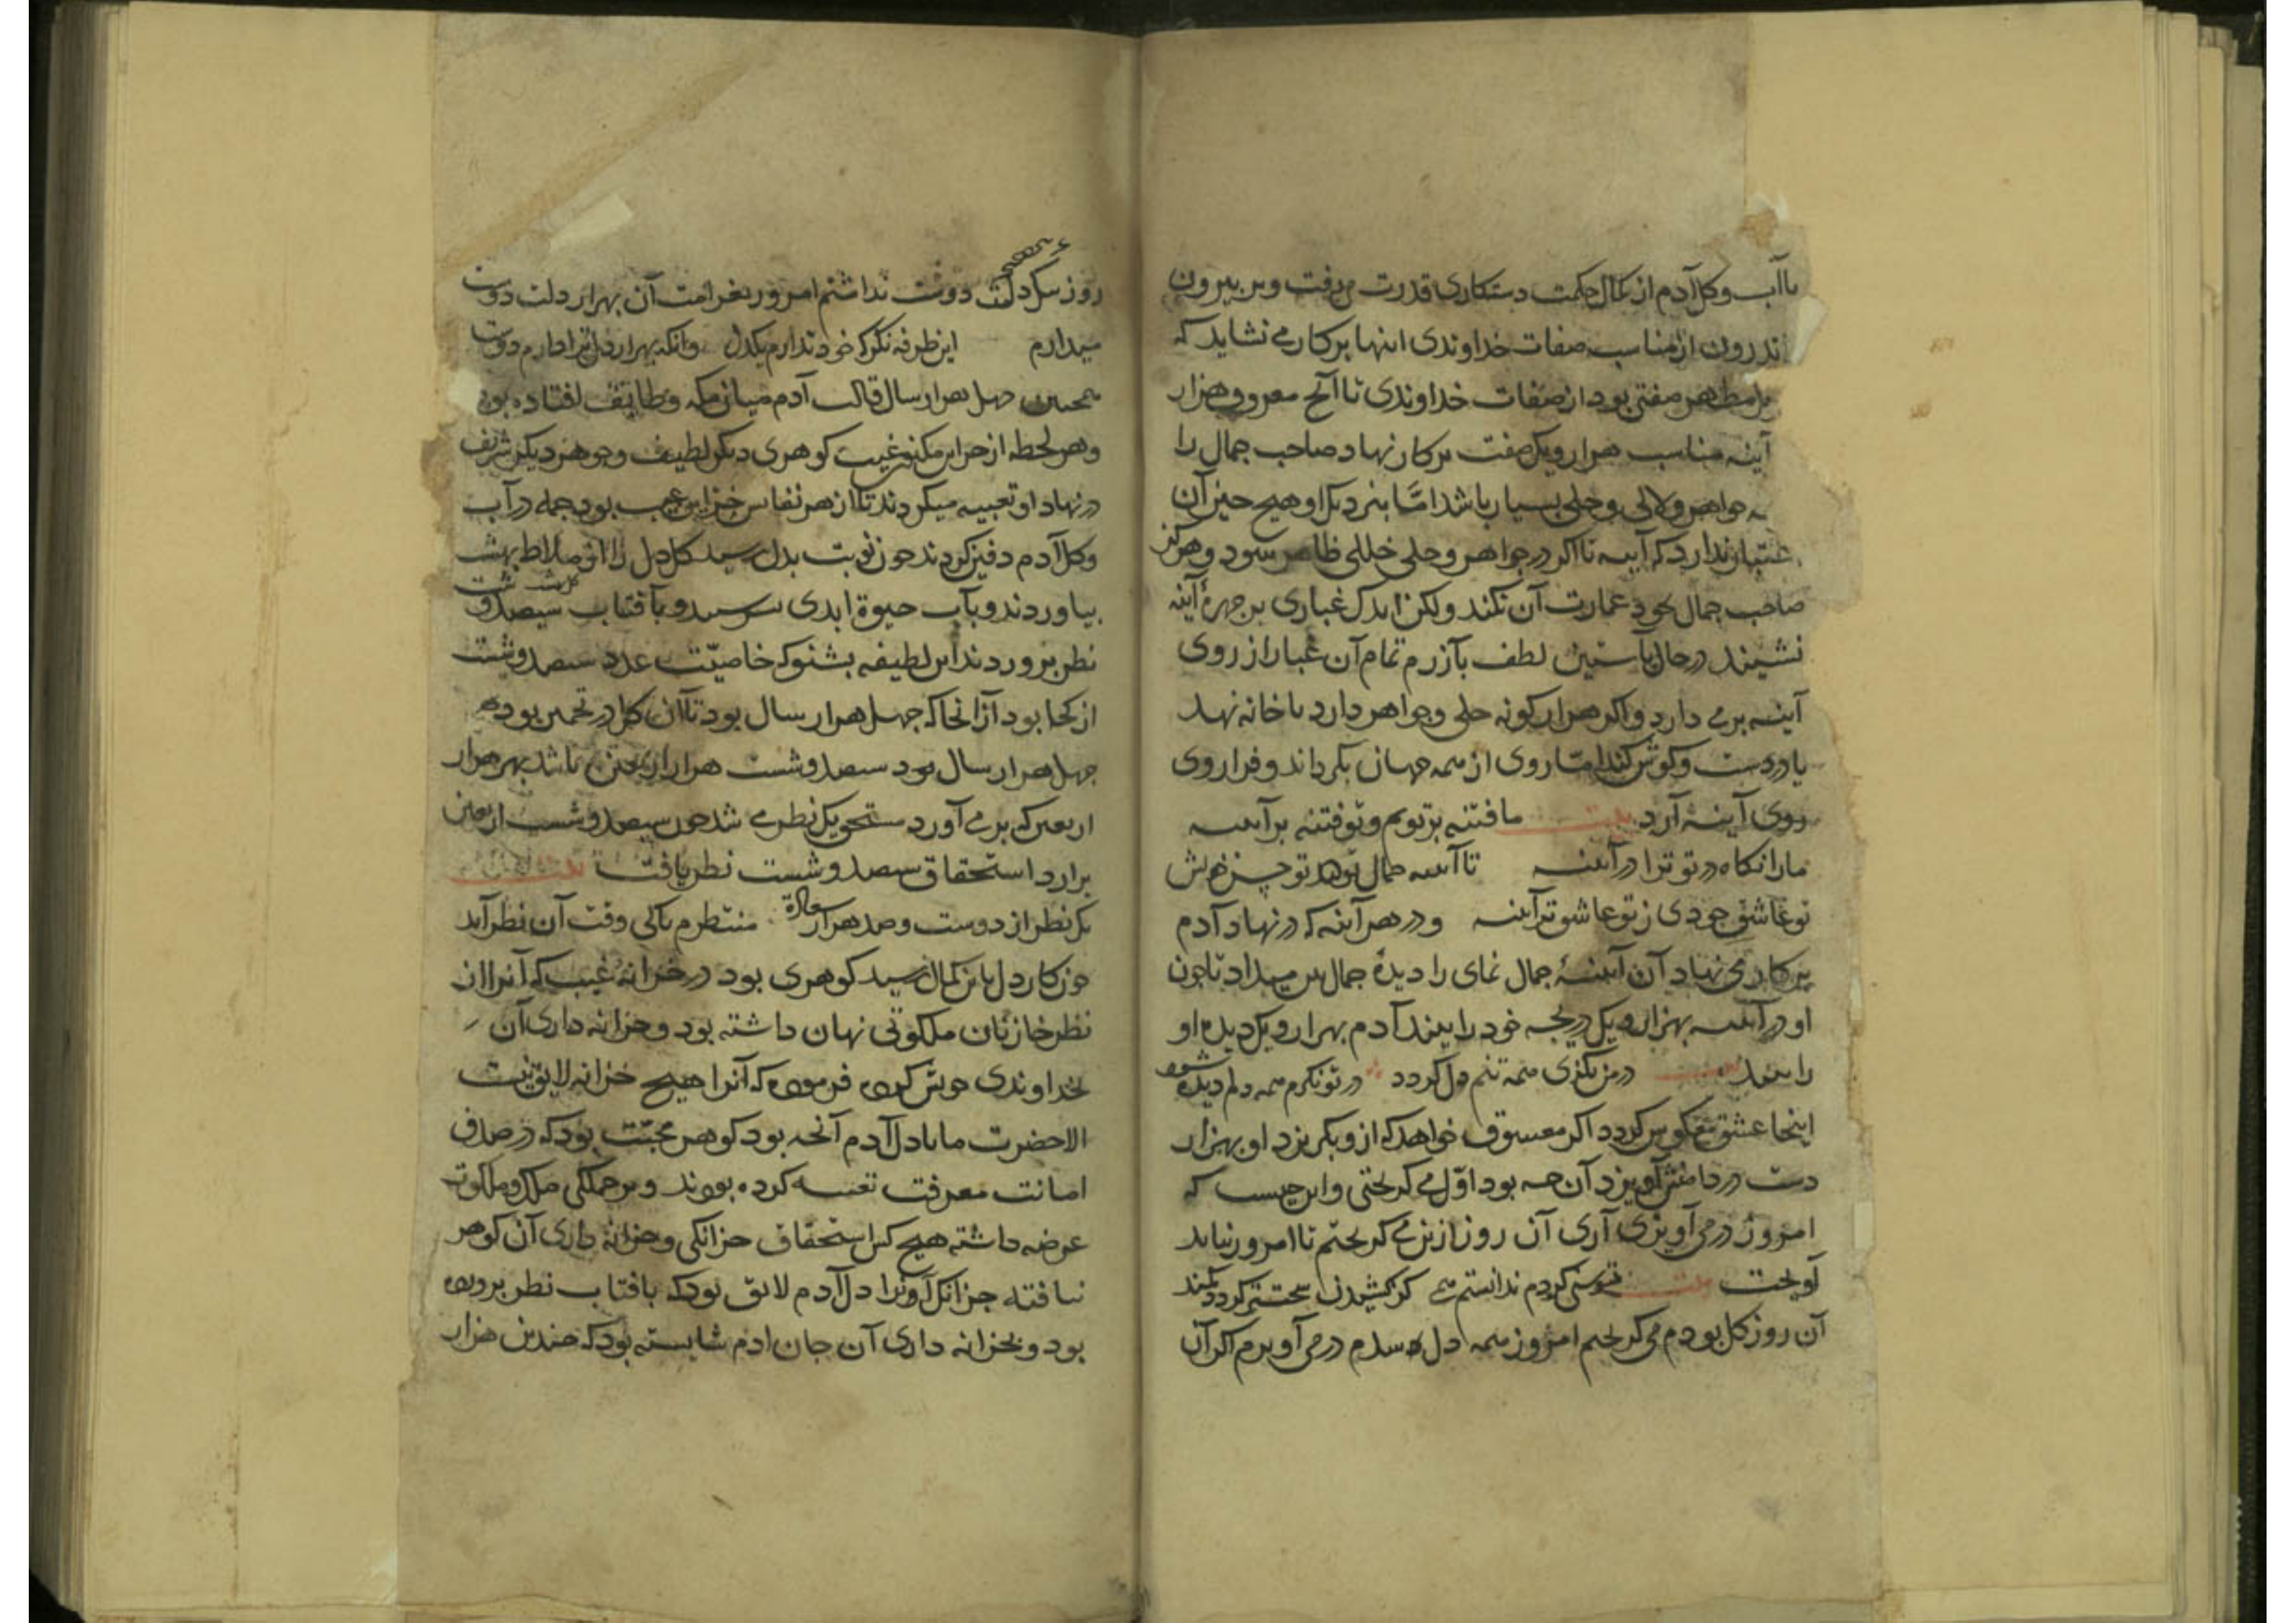 با آب و کل آدم از کمال حکمت دستکاری قدرت می رفت و بر بیرون
اندرون از مناسب صفات خداوندی اینها بر کار می نشاید که
مظهر صفتی بود از صفات خداوندی تا آنج معروف هزار
آینه مناسب هزار و یک صفت بر کار نهاد صاحب جمال را
جواهر و لالی و حلی بسیار باشد اما بنزدیک او هیچ چیز آن
اعتبار ندارد که آینه تا اکر در جواهر و حلی خللی ظاهر شود و هرکز
صاحب جمال بخود عمارت آن نکند ولکن اندک غباری بر چهرهٔ آینه
نشیند در حال باستین لطف بآزرم تمام آن غبار از روی
آینه بر می دارد و اکر هزار کونه حلی و جواهر دارد با خانه نهد
یا در دست و کوش کند اما روی از همه جهان بکرداند و فرا روی
روی آینه آرد بیت ما فتنه بر تویم و تو فتنه بر آینه
ما را نکاه در تو ترا در آینه تا آینه جمال تو دید تو حسن خویش
تو عاشق خودی ز تو عاشق تر آینه و در هر آینه که در نهاد آدم
بر کار می نهاد آن آینهٔ جمال نمای را دیدهٔ جمال بین میداد تا چون
او در آینه بهزار و یک دریچه خود را بیند آدم بهزار و یک دیده او
را بیند بیت در من نکری همه تنم دل کردد در تو نکرم همه دلم دیده شود
اینجا عشق معکوس کردد اکر معشوق خواهد که ازو بکریزد او بهزار
دست در دامنش آویزد آن چه بود اول می کریختی و این چیست که
امروز در می آویزی آری آن روز ازین می کریختم تا امروز نباید
آویخت بیت توسنی کردم ندانستم همی کز کشیدن سخت تر کردد کمند
آن روز کل بودم می کریختم امروز همه دل شدم در می آویزم اکر آن
روز بیک دلت دوست نداشتم امروز بغرامت آن بهزار دلت دوست
میدارم این طرفه نکر که خود ندارم یکدل وانکه بهزار دل ترا دارم دوست
همچنین چهل هزار سال قالب آدم میان مکه و طایف افتاده بود
و هر لحظه از خزاین مکنون غیب کوهری دیکر لطیف و جوهر دیکر شریف
در نهاد او تعبیه میکردند تا از هر نفاس خزاین غیب بود جمله در آب
و کل آدم دفین کردند چون نوبت بدل رسید کل دل را از ملاط بهشت
بیاوردند و بآب حیوة ابدی بسرشتند و بآفتاب سیصد و شصت
نظر بروردند این لطیفه بشنو که خاصیت عدد سیصد و شست
از کجا بود از آنجا که چهل هزار سال بود تا آن کل در تخمیر بود
چهل هزار سال بود سیصد و شست هزار اربعین باشد بهر هزار
اربعین که بر می آورد مستحق یک نظر می شد چون سیصد و شست اربعین
برآرد استحقاق سیصد و شست نظر یافت بیت
یک نظر از دوست و صد هزار سعادت منتظرم تا کی وقت آن نظر آید
چون کار دل باین کمال رسید کوهری بود در خزانهٔ غیب که آنرا از
نظر خازنان ملکوتی نهان داشته بود و خزانه داری آن
بخداوندی خویش کرده فرموده که آنرا هیچ خزانه لایق نیست
الا حضرت ما یا دل آدم آنچه بود کوهر محبت بود که در صدف
امانت معرفت تعبیه کرده بودند و بر جملکی ملک و ملکوت
عرضه داشته هیچ کس استحقاق خزانکی و خزانه داری آن کوهر
نیافته جز آنک او را دل آدم لایق بود که بافتاب نظر پرورده
بود و بخزانه داری آن جان ادم شایسته بود که چندین هزار